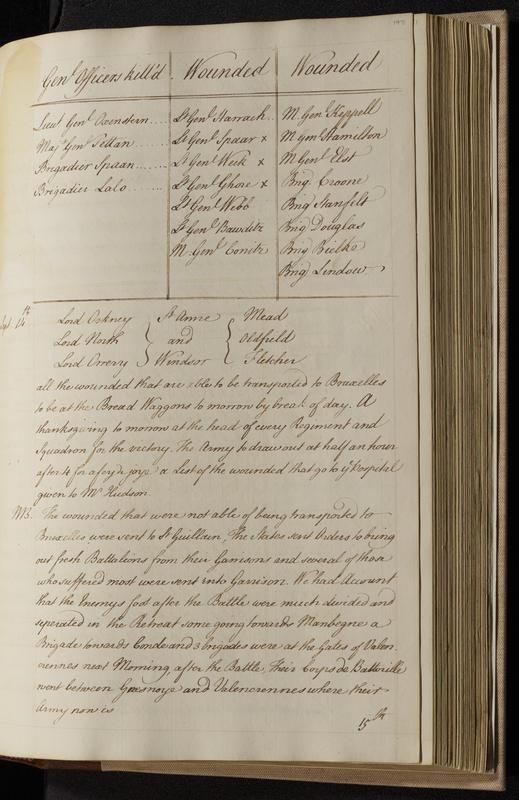 Genl Officers kill'd . Wounded Wounded
Lieut Genl Oxenstern.... Lt Genl Harrach.. M. Genl Keppell
Majr Genl Tettau...... Lt Genl Spaar x M Genl Hamilton
Brigadier Spaan...... Lt Genl Week x M Genl Elst
Brigadier Lalo....... Lt Genl Ghore x Brig Croone
Lt Genl Webb Brig Stanfelt
Lt Genl Bawditz Brig Douglas
M. Genl Conitz Brig Bielke
Brig Lindow
Sept. 14th Lord Orkney St Anne Mead
Lord North and Oldfield
Lord Orrery Windsor Fletcher
all the wounded that are able to be transported to Bruxelles
to be at the Bread Waggons to morrow by break of day. A
thanksgiving to morrow at the head of every Regiment and
Squadron for the victory. The Army to draw out at half an hour
after 4 for a feu de joye a List of the wounded that go to ye Hospital
given to Mr Hudson.
NB. The wounded that were not able of being transported to
Bruxelles were sent to St Guillain, The States sent Orders to bring
out fresh Battalions from their Garisons and several of those
who suffered most were sent into Garrison. We had Account
that the Enemys foot after the Battle were much divided and
seperated in the Retreat some going towards Manbegne a
Brigade towards Conde and 3 brigades were at the Gates of Valen
ciennes next Morning after the Battle, Their Corps de Battville
went between Quesnoye and Valenciennes where their
Army now is
15th